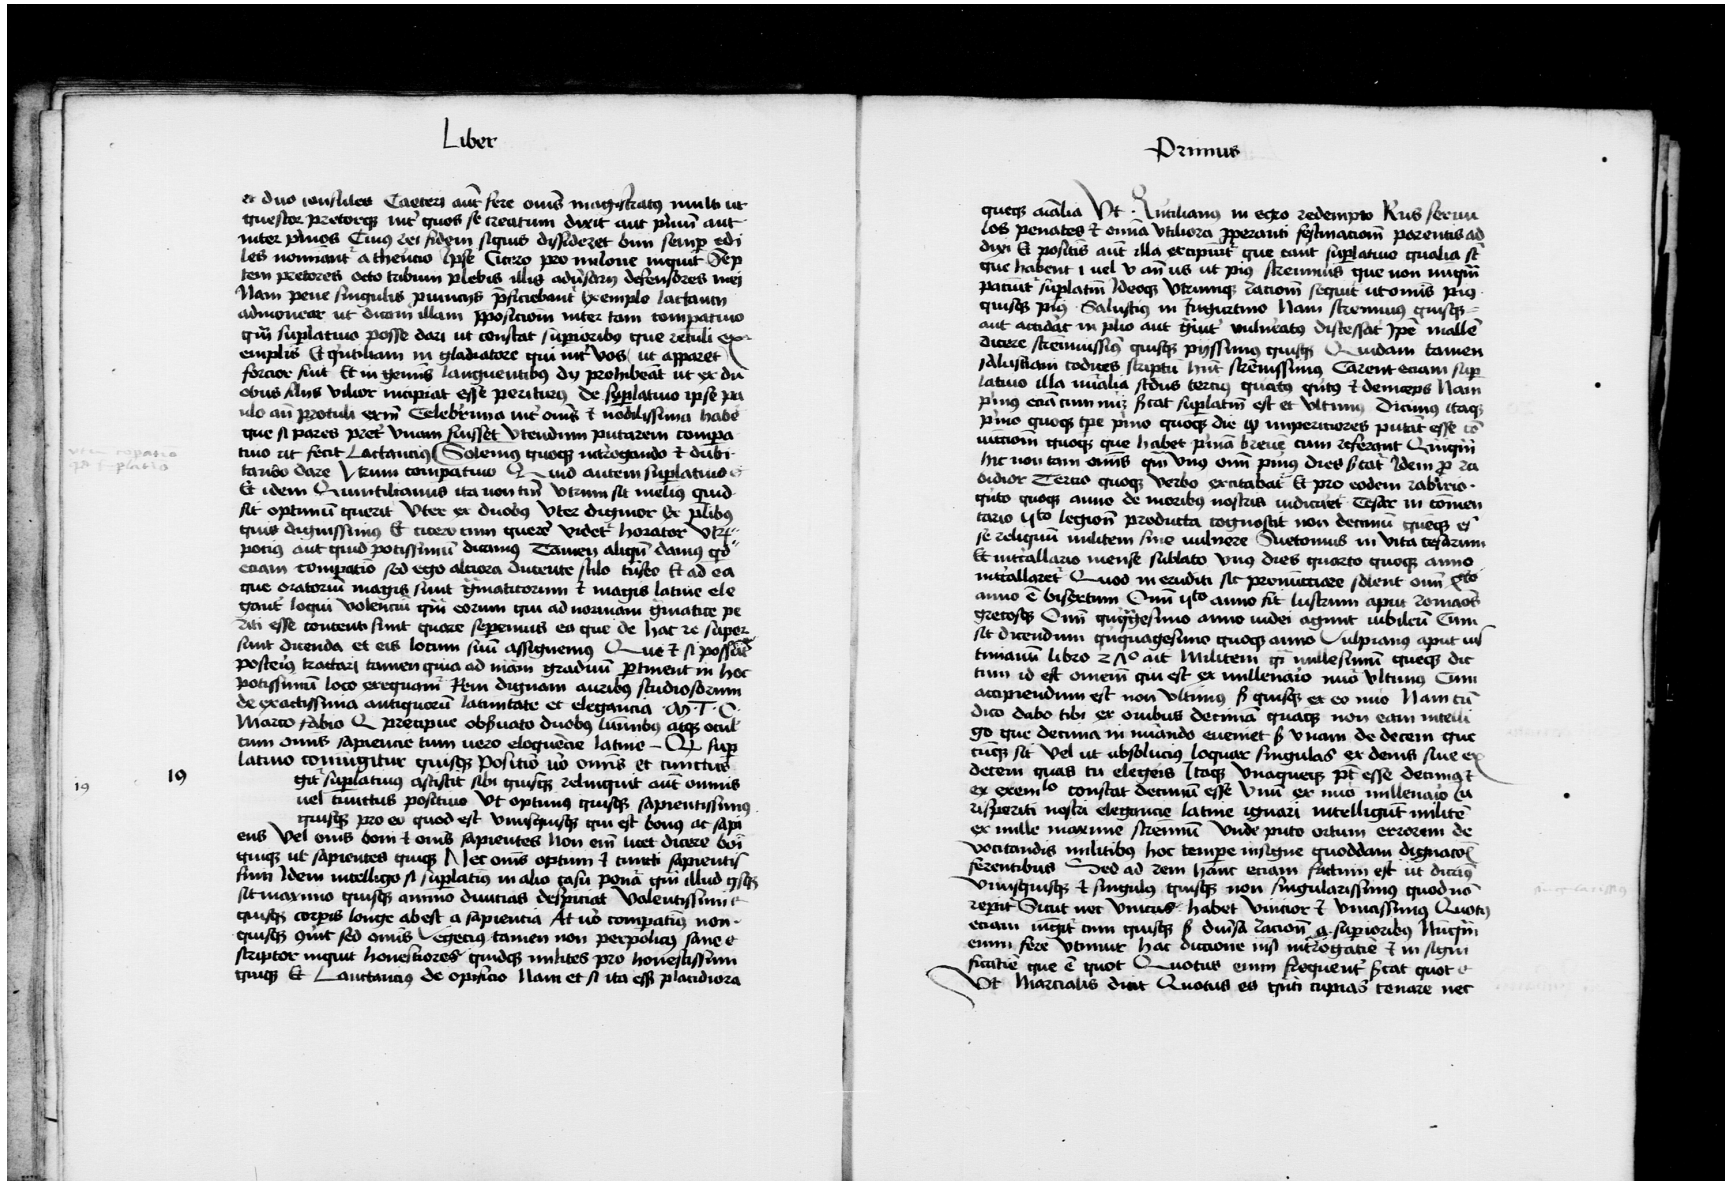 Liber
et duo consules Caeteri aūt fere om̄s magistratꝯ multi ut
questor pretorqꝫ int̄ quos se creatum dixit aut p̄mū aut
inter p̄mos Cuius rei fidem siquis dissideret bini semp̱ edi
les nominant̄ a therēcio Ipse Cicero pro milone inquit Sep
tem pretores octo tribuni plebis illiꝯ adūsarii defensores mei
Nam pene singulis punctis p̄ficiebant̄ Exemplo lactancii
admoneor ut dicam illam p̱posicionē inter tam compatiuo
qm̄ suplatiuo posse dari ut constat supioribꝯ que retuli ex
emplis Et q̄ntiliani in gladiatore qui int̄ vos ut apparet
forcior fuit Et in geminis languentibꝯ dij prohibeāt ut ex du
obus filiis vilior incipiat esse periturꝯ De sup̱latiuo ipse pa
ulo añ protuli exm̄ Celeberrima int̄ om̄s ⁊ nobilissima habe
que si pares pret̄ vnam fuisset vtendum putarem compa
tiuo ut fecit Lactancius Solemus quoqꝫ int̄rogando ⁊ dubi
tando dare Vtrum compatiuo Quid autem suplatiuo
Et idem Quintilianus ita non tm̄ vtrum sit melius quid
sit optimū querit vter ex duobꝯ vter dignior Ex plibꝯ
quis dignissimꝯ Et cicero cum querē videt̄ horator vtrū
pociꝯ aut quid potissimū dicamꝯ Tamen aliqn̄ damus qd̄
eciam compatio sed ego alciora ducente stilo tūseo Et ad ea
que oratorū magis sunt grāmaticorum ⁊ magis latine ele
gant̄ loqui volenciū qm̄ eorum qui ad normam grāmatice pe
riti esse contenti sunt quare sepemus ea que de hac re super
sunt dicenda et eis locum suū assignemus Que ⁊ si possūt
posteriꝯ tractari tamen quia ad mām graduū p̱tinent in hoc
potissimū loco exequam̄ Rem dignam auribꝯ studiosorum
de exactissima antiquorū latinitate et elegancia M T C
Marco fabio Q precipue obs̄uato duobꝯ luminibꝯ atqꝫ ocul
cum om̄is sapiencie tum uero eloquēcie latine Qꝫ sup̱
latiuo coniūgitur quisqꝫ Positiō uō omis et cunctus
19 19 git̄ sup̱latiuus asciscit sibi quisqꝫ relinquit aūt omnis
uel cunctus positiuo Vt optimꝯ quisqꝫ sapientissimꝯ
quisqꝫ pro eo quod est vnusquisqꝫ qui est bonꝯ ac sapi
ens vel om̄s boni ⁊ om̄s sapientes Non em̄ licet dicere boni
quiqꝫ ut sapientes quiqꝫ Nec om̄s optimi ⁊ cuncti sapientis
simi Idem intelligo si suplatiuꝯ in alio casu ponat̄ qm̄ illud qsqꝫ
sit maximo quisqꝫ animo diuicias despiciat Valentissimi
quisqꝫ corpis longe abest a sapiencia At uō compatiuꝯ non
quisqꝫ q̄rit sed omīs Vegecius tamen non perpolitꝯ sane
scriptor inquit honestiores quidqꝫ milites pro honestissimi
quiqꝫ Et Lanctanciꝯ de opificio Nam et si ita esset placidiora
Primus
queqꝫ aīalia Vt Quintilianus in egro redempto Rus seruu
los penates ⁊ omia vtiliora p̱peranti festinacionī parentis ad
dixi Et positiuis aūt illa excipiunt̄ que cant suplatiuo qualia st̄
que habent i vel u an̄ us ut piꝯ strenuus que non nūqm̄
paciūt̄ suplatiuū Ideoqꝫ vtrumqꝫ racionem sequit̄ ut omis piꝯ
quisqꝫ piꝯ Salustiꝯ in iugurtino Nam strenuus quisqꝫ
aut actidāt in plio aut graūit vulneratꝯ discessāt Ipē mallē
dicere strenuissimꝯ quisqꝫ pijssimꝯ quisqꝫ Quidam tamen
salustiani codices scriptū hn̄t strēnissimꝯ Carent eciam sup̱
latiuo illa nūalia scd̄us tercius quartꝯ quitꝯ ⁊ deinceps Nam
p̄mꝯ
p̄mo quoqꝫ tpe p̄mo quoqꝫ die qꝫ imperitiores putāt esse cō
iūctionē quoqꝫ que habet p̄mā breuē cum referant Qūiqm̄
hic non tam om̄is qm̄ vnꝯ om̄i p̄mꝯ dies s̄cat Idem ꝓ ra
bidior Tercio quoqꝫ verbo excitabat̄ Et pro eodem rabirio
q̄nto quoqꝫ anno de moribus nostris iudicaret Cesar in comen
tario ijto legionē producta cognoscit non decimū quēqꝫ eē
se reliquū militem sine vulnere Suetonius in vita cesarum
Et int̄callario mense sublato vnꝯ dies quarto quoqꝫ anno
int̄callaret̄ Quod in eruditi sic pronunciare solent om̄i qrto
anno ē bisextum Om̄i vto anno fit lustrum aput romanos
grecosqꝫ Om̄i quīquagesimo anno iudei agunt iubileū Cum
sit dicendum quiquagesimo quoqꝫ anno Vulpianus aput iusS
tinianū libro ait Militem qi millesimum quēqꝫ dic
tum id est omēm qui est ex millenario nūo vltimus Cum
accipiendum est non vltimus s̄ quisqꝫ ex eo nūo Nam cū
dico dabo tibi ex ouibus decimā quāqꝫ non eam intelli
go que decima in nūando eueniet s̄ vnam de decem que
cūqꝫ sit Vel ut absolucius loquar singulas ex denis siue ex
decem quas tu elegeris Itaqꝫ vnaqueqꝫ pt̄ esse decimꝯ ⁊
ex exemlo constat decimū esse vnū ex nūo millenario Iu
risperiti nostri elegancie latine ignari intelligūt militē
ex mille maxime strenuū Vnde puto ortum errorem de
vocitandis militibꝯ hoc tempe insigne quoddam dignacōs
ferentibus Sed ad rem hanc eciam factum est ut dicāt̄
Vnusquisqꝫ ⁊ singulꝯ quisqꝫ non singularissimus quod nō
rep̱it Sicut nec vnicus habet vnicior ⁊ vnicissimꝯ Quotꝯ
eciam iūgit̄ cum quisqꝫ s̄ diuīsa racionē a supioribꝯ Nūqm̄
enim fere vtimur hac dictione nisi int̄rogatiē ⁊ in signi
ficatiē que ē quot Quotus enim frequent̄ s̄cat quot
Vt Marcialis dicit Quotus es quāti cupias cenare nec